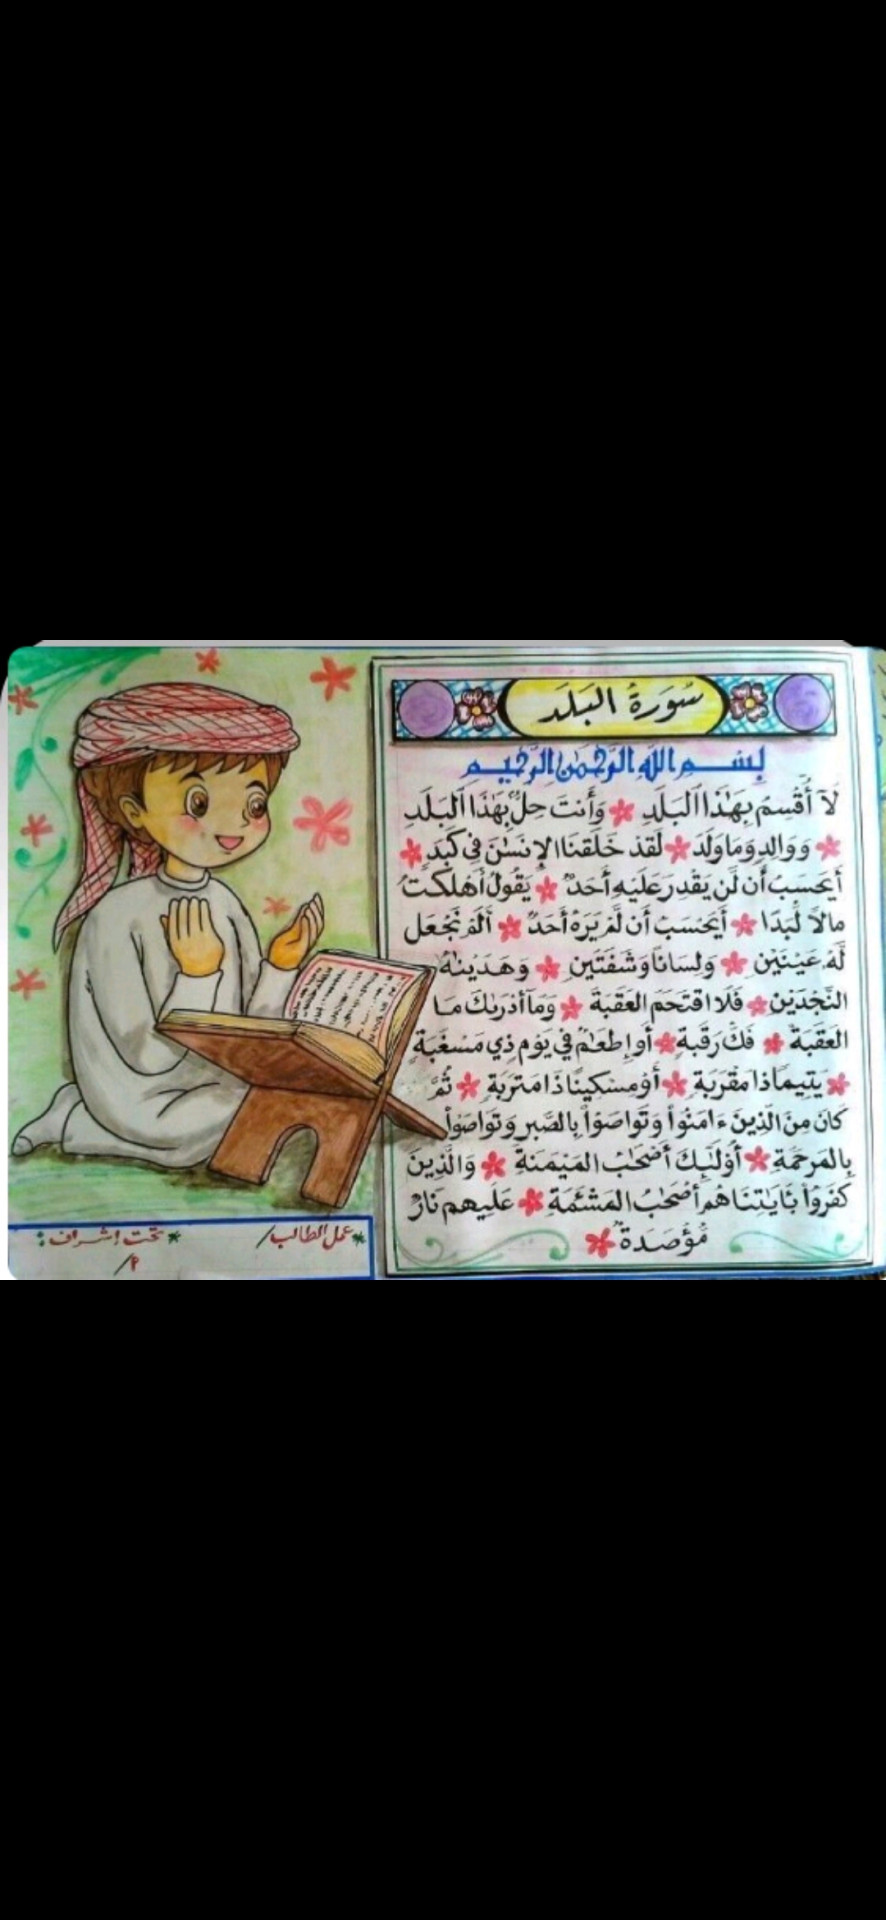 سُورَةُ البَلَد
بِسْمِ اللهِ الرَّحْمٰنِ الرَّحِيمِ
لَآ أُقْسِمُ بِهَٰذَا البَلَدِ * وَأَنتَ حِلٌّ بِهَٰذَا البَلَدِ
* وَوَالِدٍ وَمَا وَلَدَ * لَقَدْ خَلَقْنَا الإِنسَٰنَ فِي كَبَدٍ *
أَيَحْسَبُ أَن لَّن يَقْدِرَ عَلَيْهِ أَحَدٌ * يَقُولُ أَهْلَكْتُ
مَالًا لُّبَدًا * أَيَحْسَبُ أَن لَّمْ يَرَهُ أَحَدٌ * أَلَمْ نَجْعَل
لَّهُ عَيْنَيْنِ * وَلِسَانًا وَشَفَتَيْنِ * وَهَدَيْنَٰهُ
النَّجْدَيْنِ * فَلَا اقْتَحَمَ العَقَبَةَ * وَمَا أَدْرَىٰكَ مَا
العَقَبَةُ * فَكُّ رَقَبَةٍ * أَوْ إِطْعَٰمٌ فِي يَوْمٍ ذِي مَسْغَبَةٍ
* يَتِيمًا ذَا مَقْرَبَةٍ * أَوْ مِسْكِينًا ذَا مَتْرَبَةٍ * ثُمَّ
كَانَ مِنَ الَّذِينَ ءَامَنُوا وَتَوَاصَوْا بِالصَّبْرِ وَتَوَاصَوْا
بِالمَرْحَمَةِ * أُوْلَٰئِكَ أَصْحَٰبُ المَيْمَنَةِ * وَالَّذِينَ
كَفَرُوا بِئَايَٰتِنَا هُمْ أَصْحَٰبُ المَشْئَمَةِ * عَلَيْهِمْ نَارٌ
مُّؤْصَدَةٌ *
* عمل الطالب /
* تحت إشراف :
م /